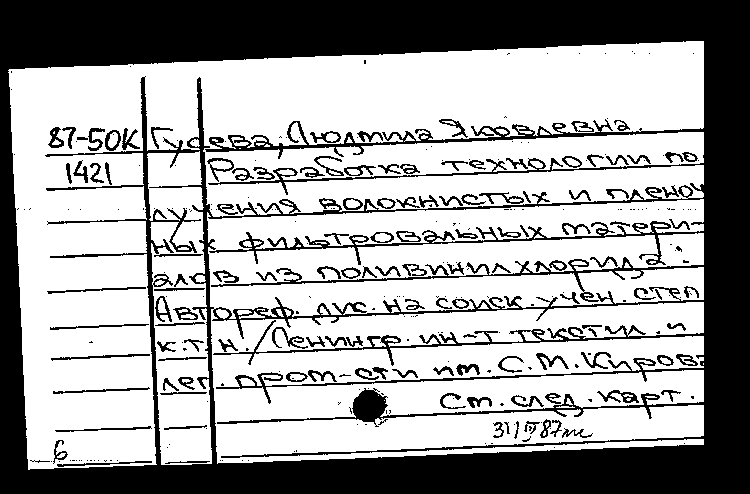 87-50К Гусева, Людмила Яковлевна.
1421 Разработка технологии по-
лучения волокнистых и пленоч
ных фильтровальных матери-
алов из поливинилхлорида :
Автореф. дис. на соиск. учен. степ
к.т.н. / Ленингр. ин-т текстил. и
лег. пром-сти им. С.М.Кирова
Ст. след. карт.
31/III 87
6